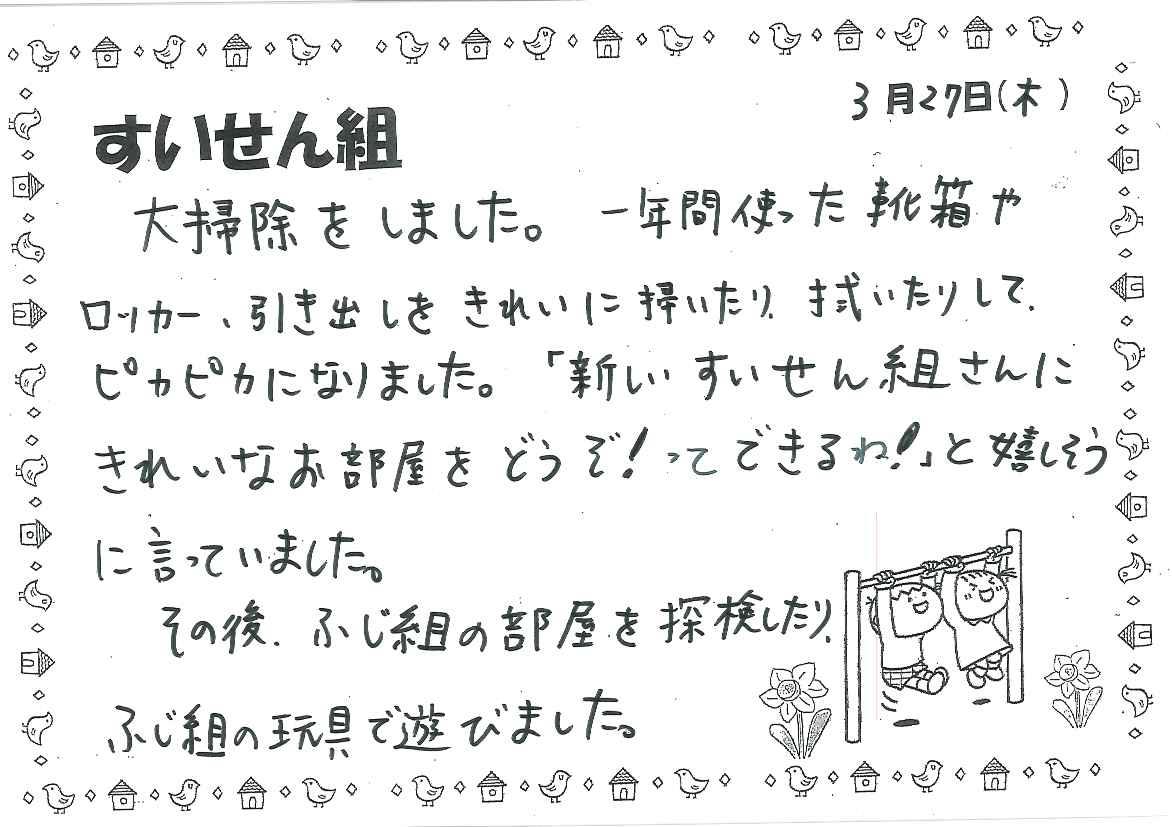 3月27日(木)
すいせん組
大掃除をしました。一年間使った靴箱や
ロッカー、引き出しをきれいに掃いたり、拭いたりして、
ピカピカになりました。「新しいすいせん組さんに
きれいなお部屋をどうぞ!ってできるね!」と嬉しそう
に言っていました。
その後、ふじ組の部屋を探検したり、
ふじ組の玩具で遊びました。